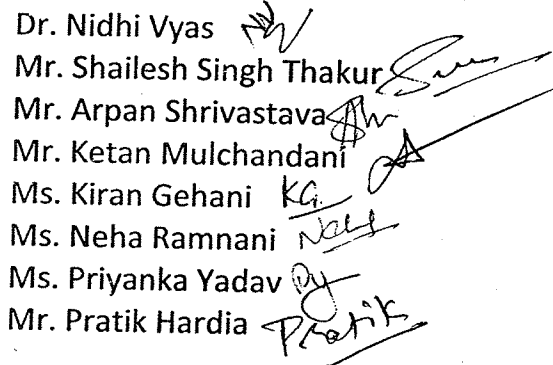 Dr. Nidhi Vyas
Mr. Shailesh Singh Thakur
Mr. Arpan Shrivastava
Mr. Ketan Mulchandani
Ms. Kiran Gehani KG.
Ms. Neha Ramnani
Ms. Priyanka Yadav Py
Mr. Pratik Hardia Pratik